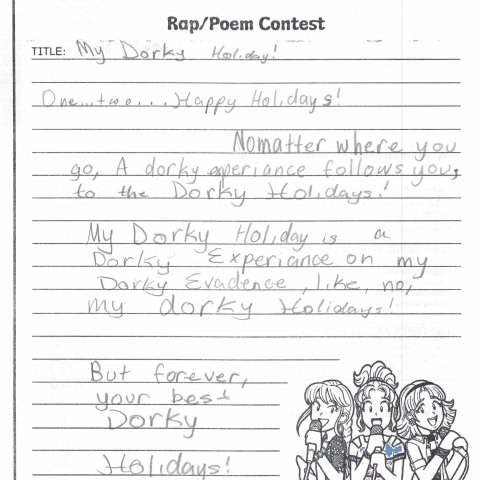 Rap/Poem Contest
TITLE: My Dorky Holiday!
One...two...Happy Holidays!
Nomatter where you
go, A dorky experiance follows you,
to the Dorky Holidays!
My Dorky Holiday is a
Dorky Experiance on my
Dorky Evadence, like, no,
my dorky Holidays!
But forever,
your best
Dorky
Holidays!